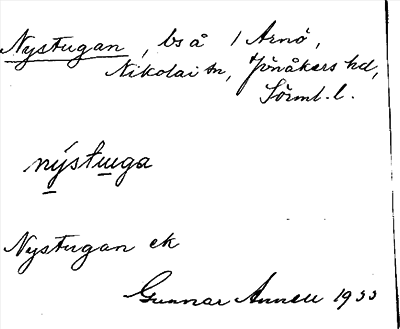 Nystugan, bs å 1 Arnö,
Nikolai sn, Jönåkers hd,
Sörml. l.
nýstuga
Nystugan ek
Gunnar Annell 1933